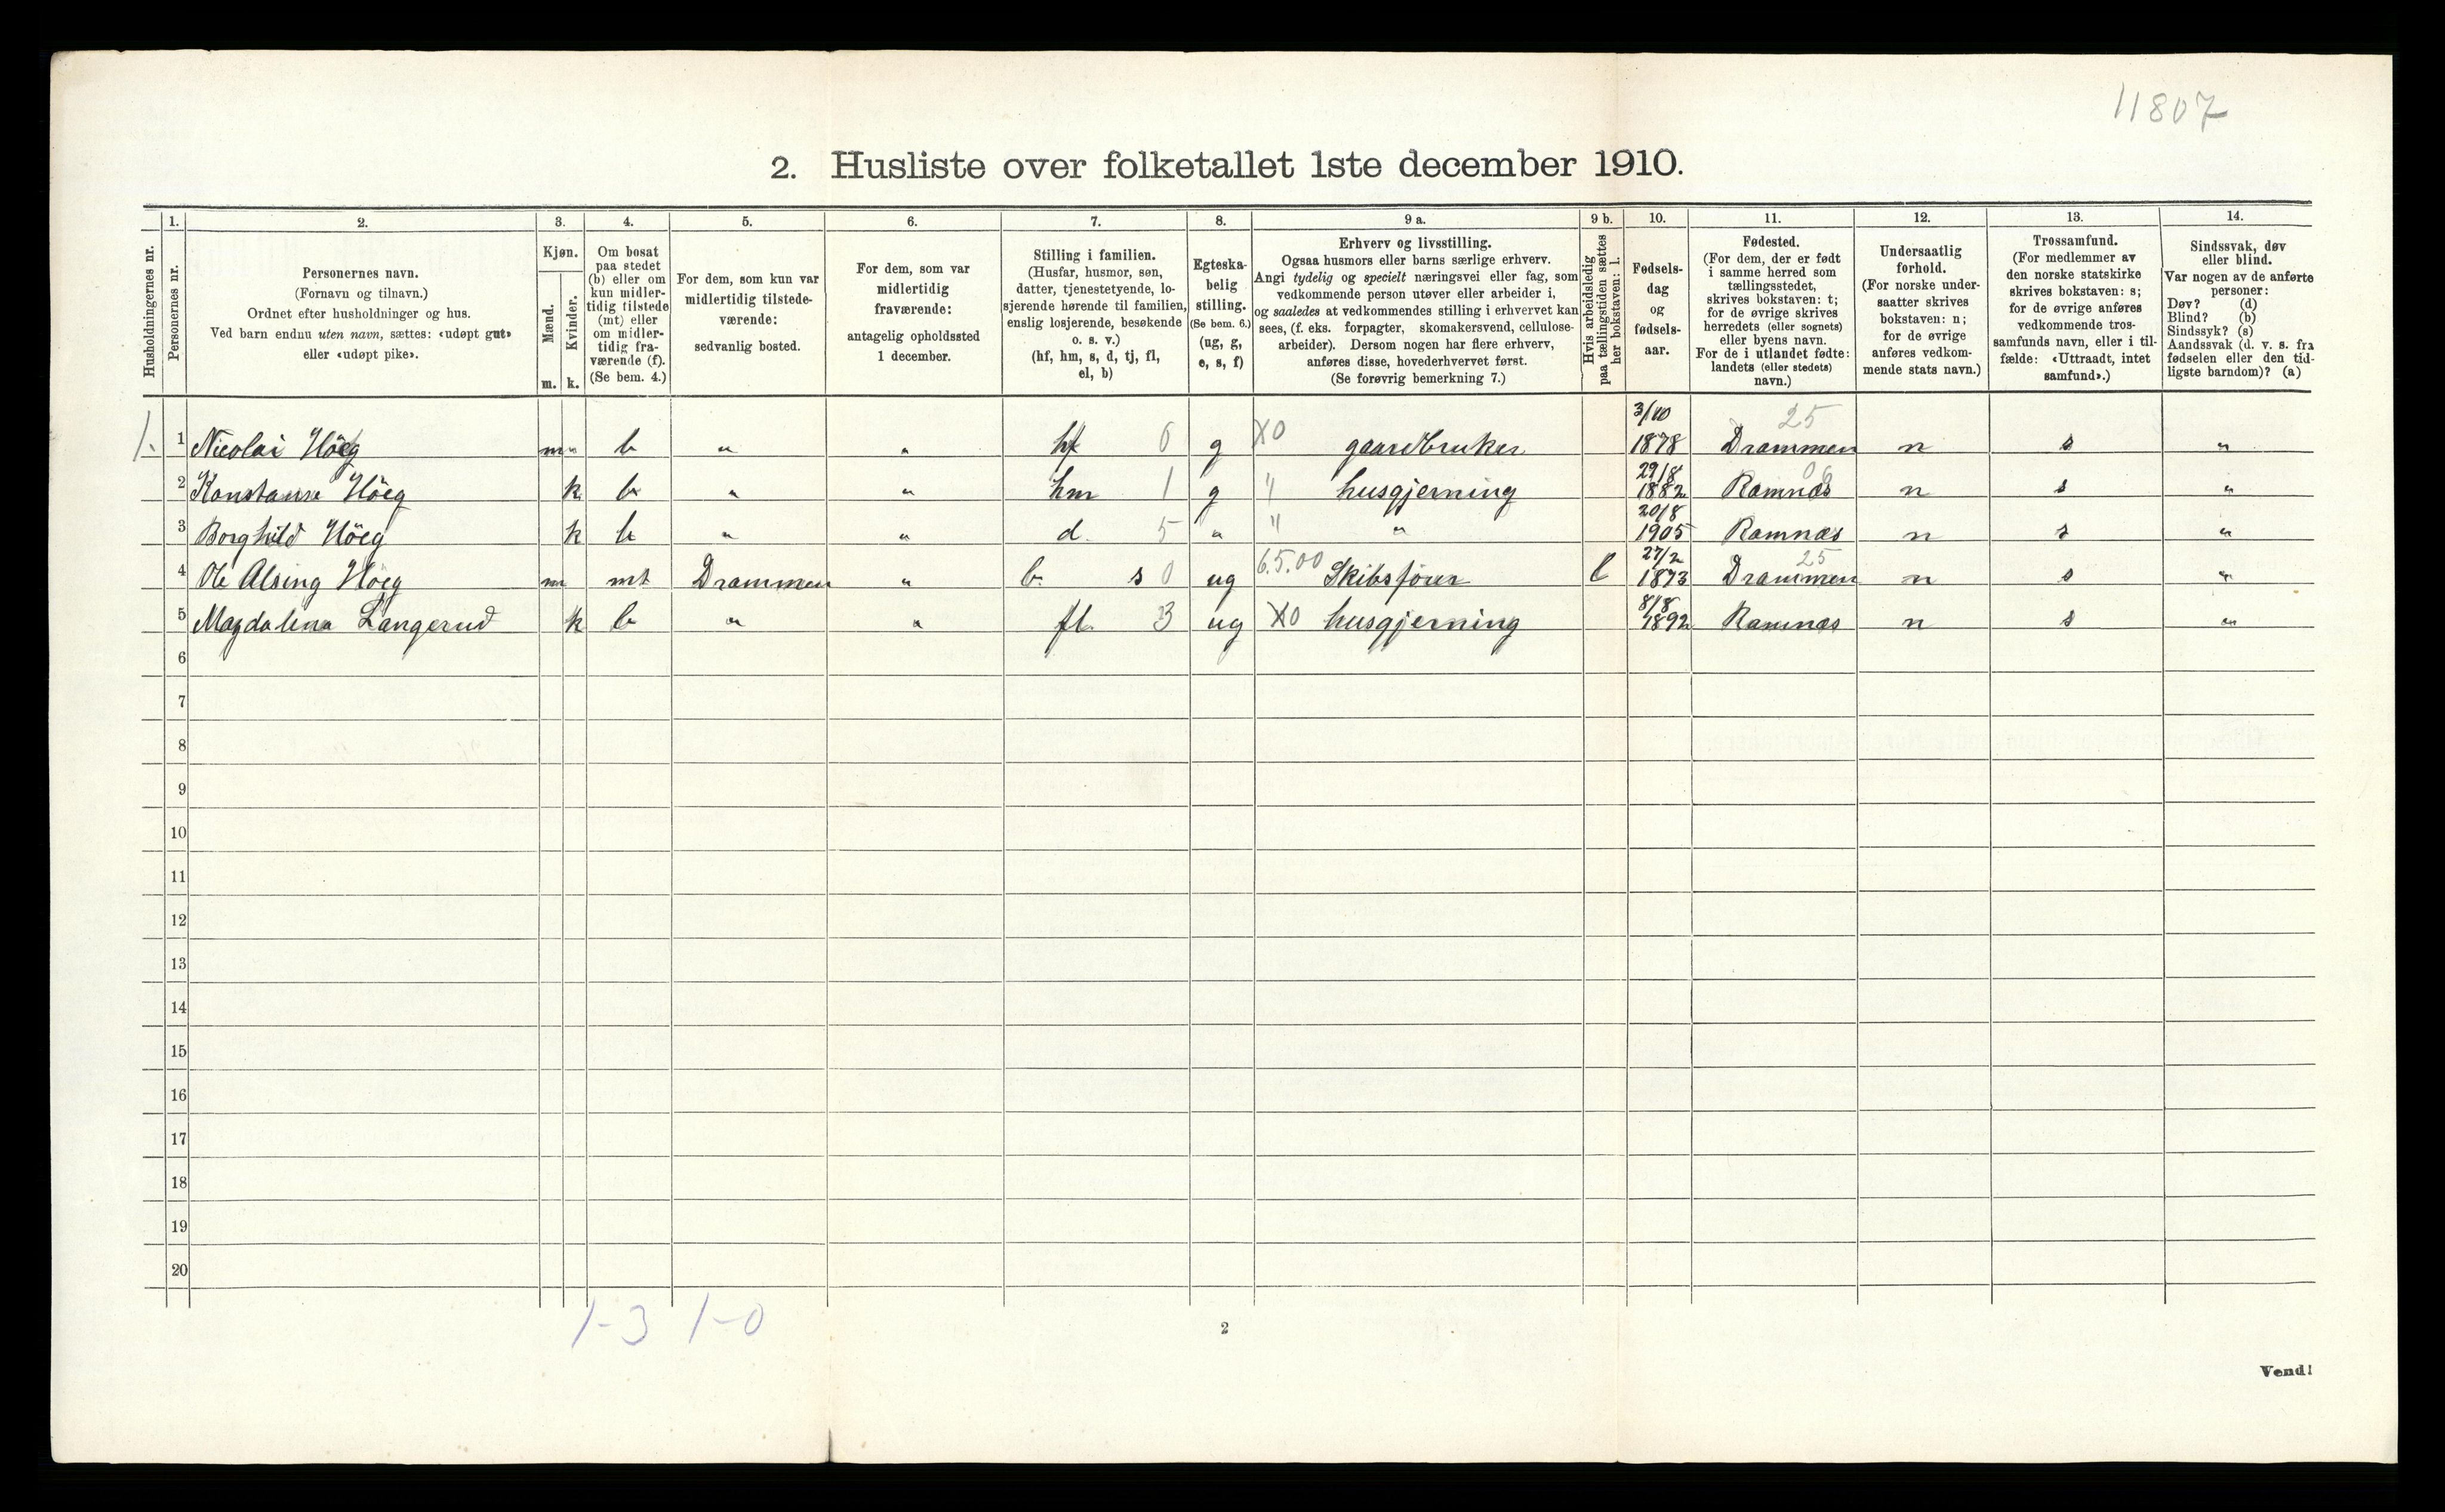 11807
2. Husliste over folketallet 1ste december 1910.
Husholdningernes nr.
1.
Personernes nr.
2.
Personernes navn.
(Fornavn og tilnavn.)
Ordnet efter husholdninger og hus.
Ved barn endnu uten navn, sættes: «udøpt gut»
eller «udøpt pike».
3.
Kjøn.
Mænd.
Kvinder.
m. k.
4.
Om bosat
paa stedet
(b) eller om
kun midler-
tidig tilstede
(mt) eller
om midler-
tidig fra-
værende (f).
(Se bem. 4.)
5.
For dem, som kun var
midlertidig tilstede-
værende:
sedvanlig bosted.
6.
For dem, som var
midlertidig
fraværende:
antagelig opholdssted
1 december.
7.
Stilling i familien.
(Husfar, husmor, søn,
datter, tjenestetyende, lo-
sjerende hørende til familien,
enslig losjerende, besøkende
o. s. v.)
(hf, hm, s, d, tj, fl,
el, b)
8.
Egteska-
belig
stilling.
(Se bem. 6.)
(ug, g,
e, s, f)
9 a.
Erhverv og livsstilling.
Ogsaa husmors eller barns særlige erhverv.
Angi tydelig og specielt næringsvei eller fag, som
vedkommende person utøver eller arbeider i,
og saaledes at vedkommendes stilling i erhvervet kan
sees, (f. eks. forpagter, skomakersvend, cellulose-
arbeider). Dersom nogen har flere erhverv,
anføres disse, hovederhvervet først.
(Se forøvrig bemerkning 7.)
9 b.
Hvis arbeidsledig
paa tællingstiden sættes
her bokstaven: l.
10.
Fødsels-
dag
og
fødsels-
aar.
11.
Fødested.
(For dem, der er født
i samme herred som
tællingsstedet,
skrives bokstaven: t;
for de øvrige skrives
herredets (eller sognets)
eller byens navn.
For de i utlandet fødte:
landets (eller stedets)
navn.)
12.
Undersaatlig
forhold.
(For norske under-
saatter skrives
bokstaven: n;
for de øvrige
anføres vedkom-
mende stats navn.)
13.
Trossamfund.
(For medlemmer av
den norske statskirke
skrives bokstaven: s;
for de øvrige anføres
vedkommende tros-
samfunds navn, eller i til-
fælde: «Uttraadt, intet
samfund».)
14.
Sindssvak, døv
eller blind.
Var nogen av de anførte
personer:
Døv? (d)
Blind? (b)
Sindssyk? (s)
Aandssvak (d. v. s. fra
fødselen eller den tid-
ligste barndom)? (a)
3/10 25
1. 1 Nicolai Höeg m " b " " hf 0 g X0 gaardbruker 1878 Drammen n s "
29/8 06
2 Konstanse Höeg k b " " hm 1 g " husgjerning 1882 Ramnæs n s "
20/8
3 Borghild Höeg k b " " d 5 " " " 1905 Ramnæs n s "
27/2 25
4 Ole Alsing Höeg m mt Drammen " b. s 0 ug 6.5.00 Skibsfører l 1873 Drammen n s "
8/8
5 Magdalena Langerud k b " " fl 3 ug X0 husgjerning 1892 Ramnæs n s "
6
7
8
9
10
11
12
13
14
15
16
17
18
19
20
1-3 1-0
2
Vend!